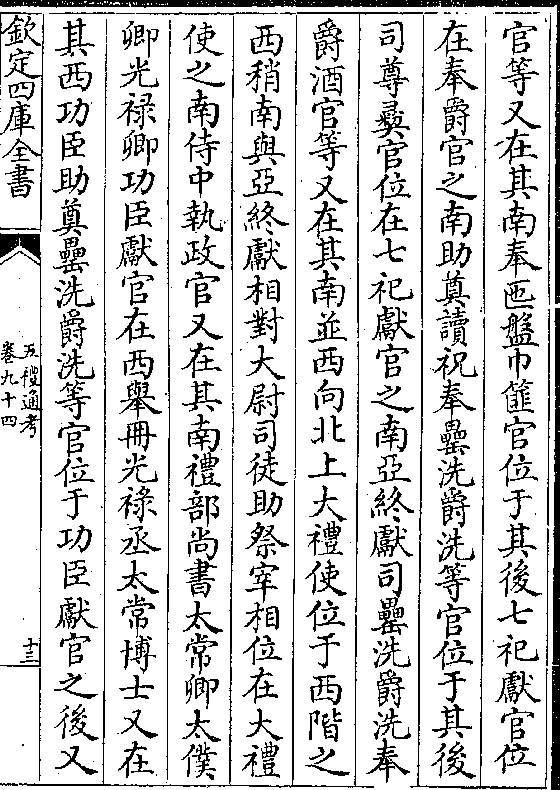 官等又在其南奉匜盤巾篚官位于其後七祀獻官位
在奉爵官之南助奠讀祝奉罍洗爵洗等官位于其後
司尊彝官位在七祀獻官之南亞終獻司罍洗爵洗奉
爵酒官等又在其南並西向北上大禮使位于西階之
西稍南與亞終獻相對大尉司徒助祭宰相位在大禮
使之南侍中執政官又在其南禮部尚書太常卿太僕
卿光禄卿功臣獻官在西舉冊光禄丞太常博士又在
其西功臣助奠罍洗爵洗等官位于功臣獻官之後又
欽定四庫全書
五禮通考
卷九十四
十三